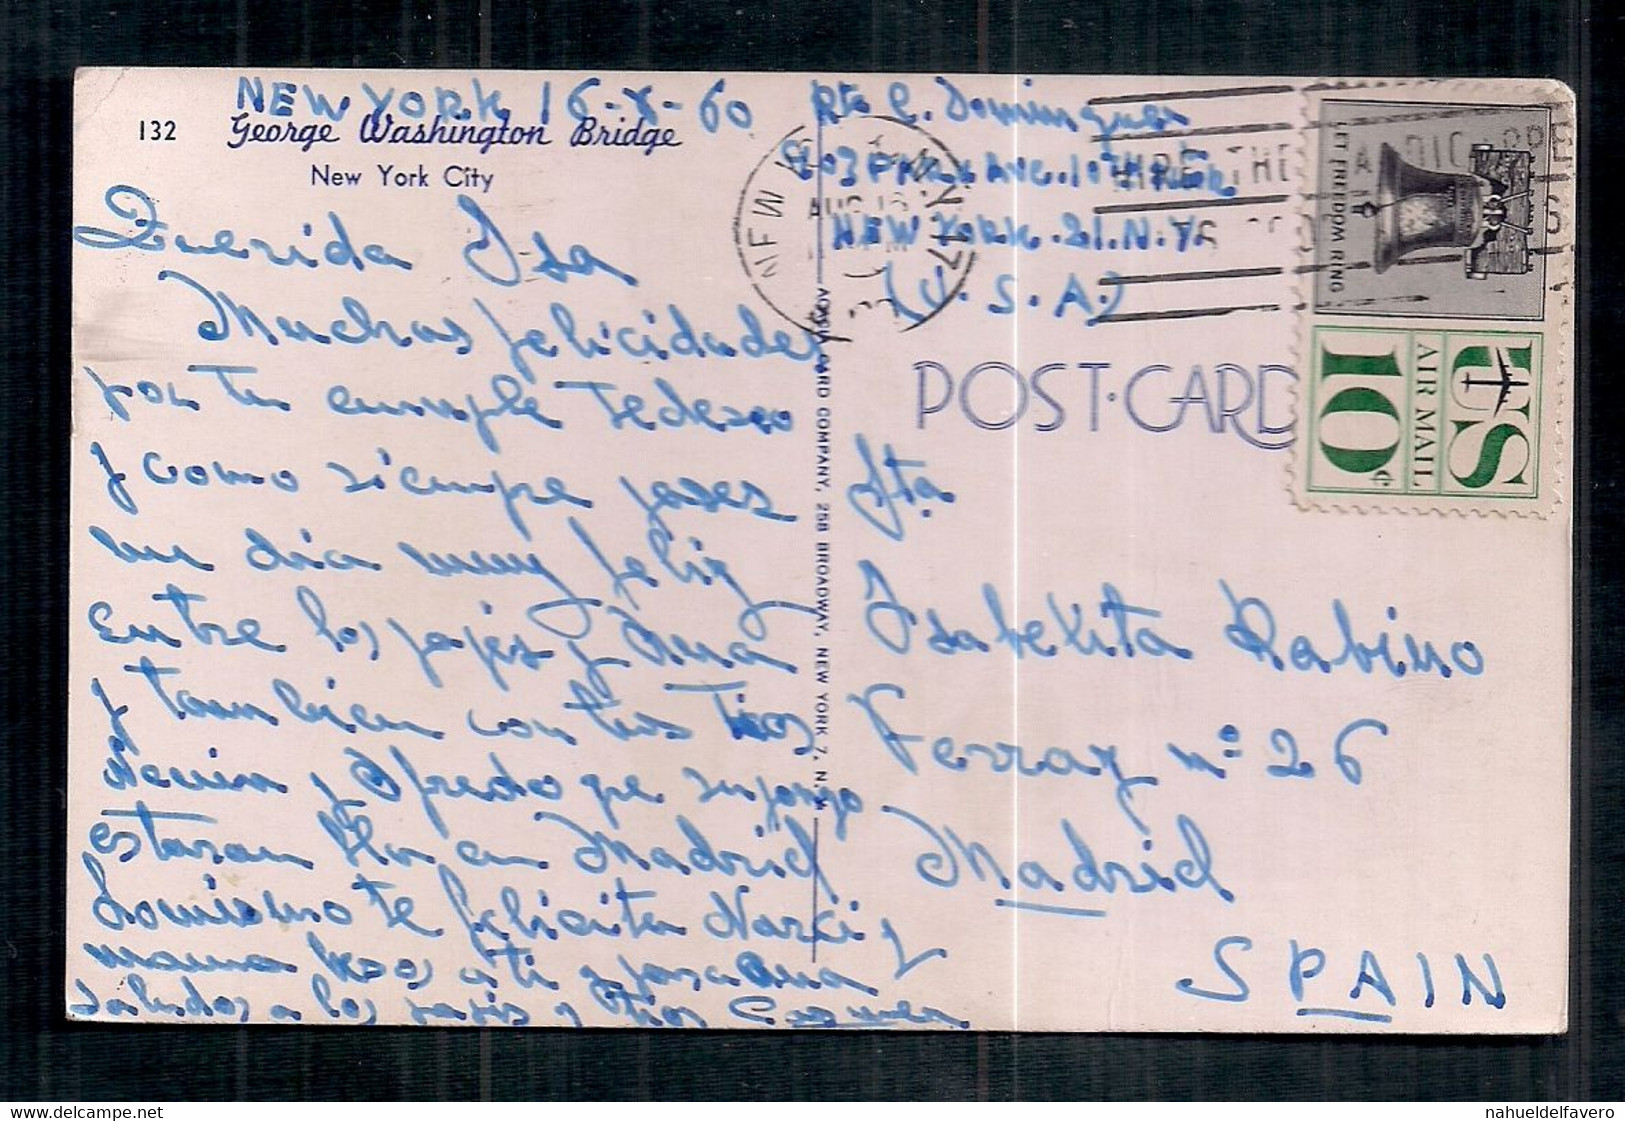 NEW YORK 16-8-60
132 George Washington Bridge
New York City
Querida Isa
Muchas felicidades
por tu cumple te deseo
y como siempre pases
un dia muy feliz
entre los papis y Ana
y tambien con tus Tios
y Alfredo que supongo
estaran en Madrid
Lo mismo te felicita Narci y
mama besos a ti y para Ana
saludos a los papis y tios Carmen
Rte C. Dominguez
803 PARK AVE.
NEW YORK. 21. N.Y.
(U.S.A.)
POST-CARD
Sta
Isabelita Rabino
Ferraz nº 26
Madrid
SPAIN
CARD COMPANY, 258 BROADWAY, NEW YORK 7, N.Y.
NEW YORK
AUG 16
N.Y. 17
HIRE THE HANDICAPPED
LET FREEDOM RING
US
AIR MAIL
10¢
delcampe.net
nahueldelfavero